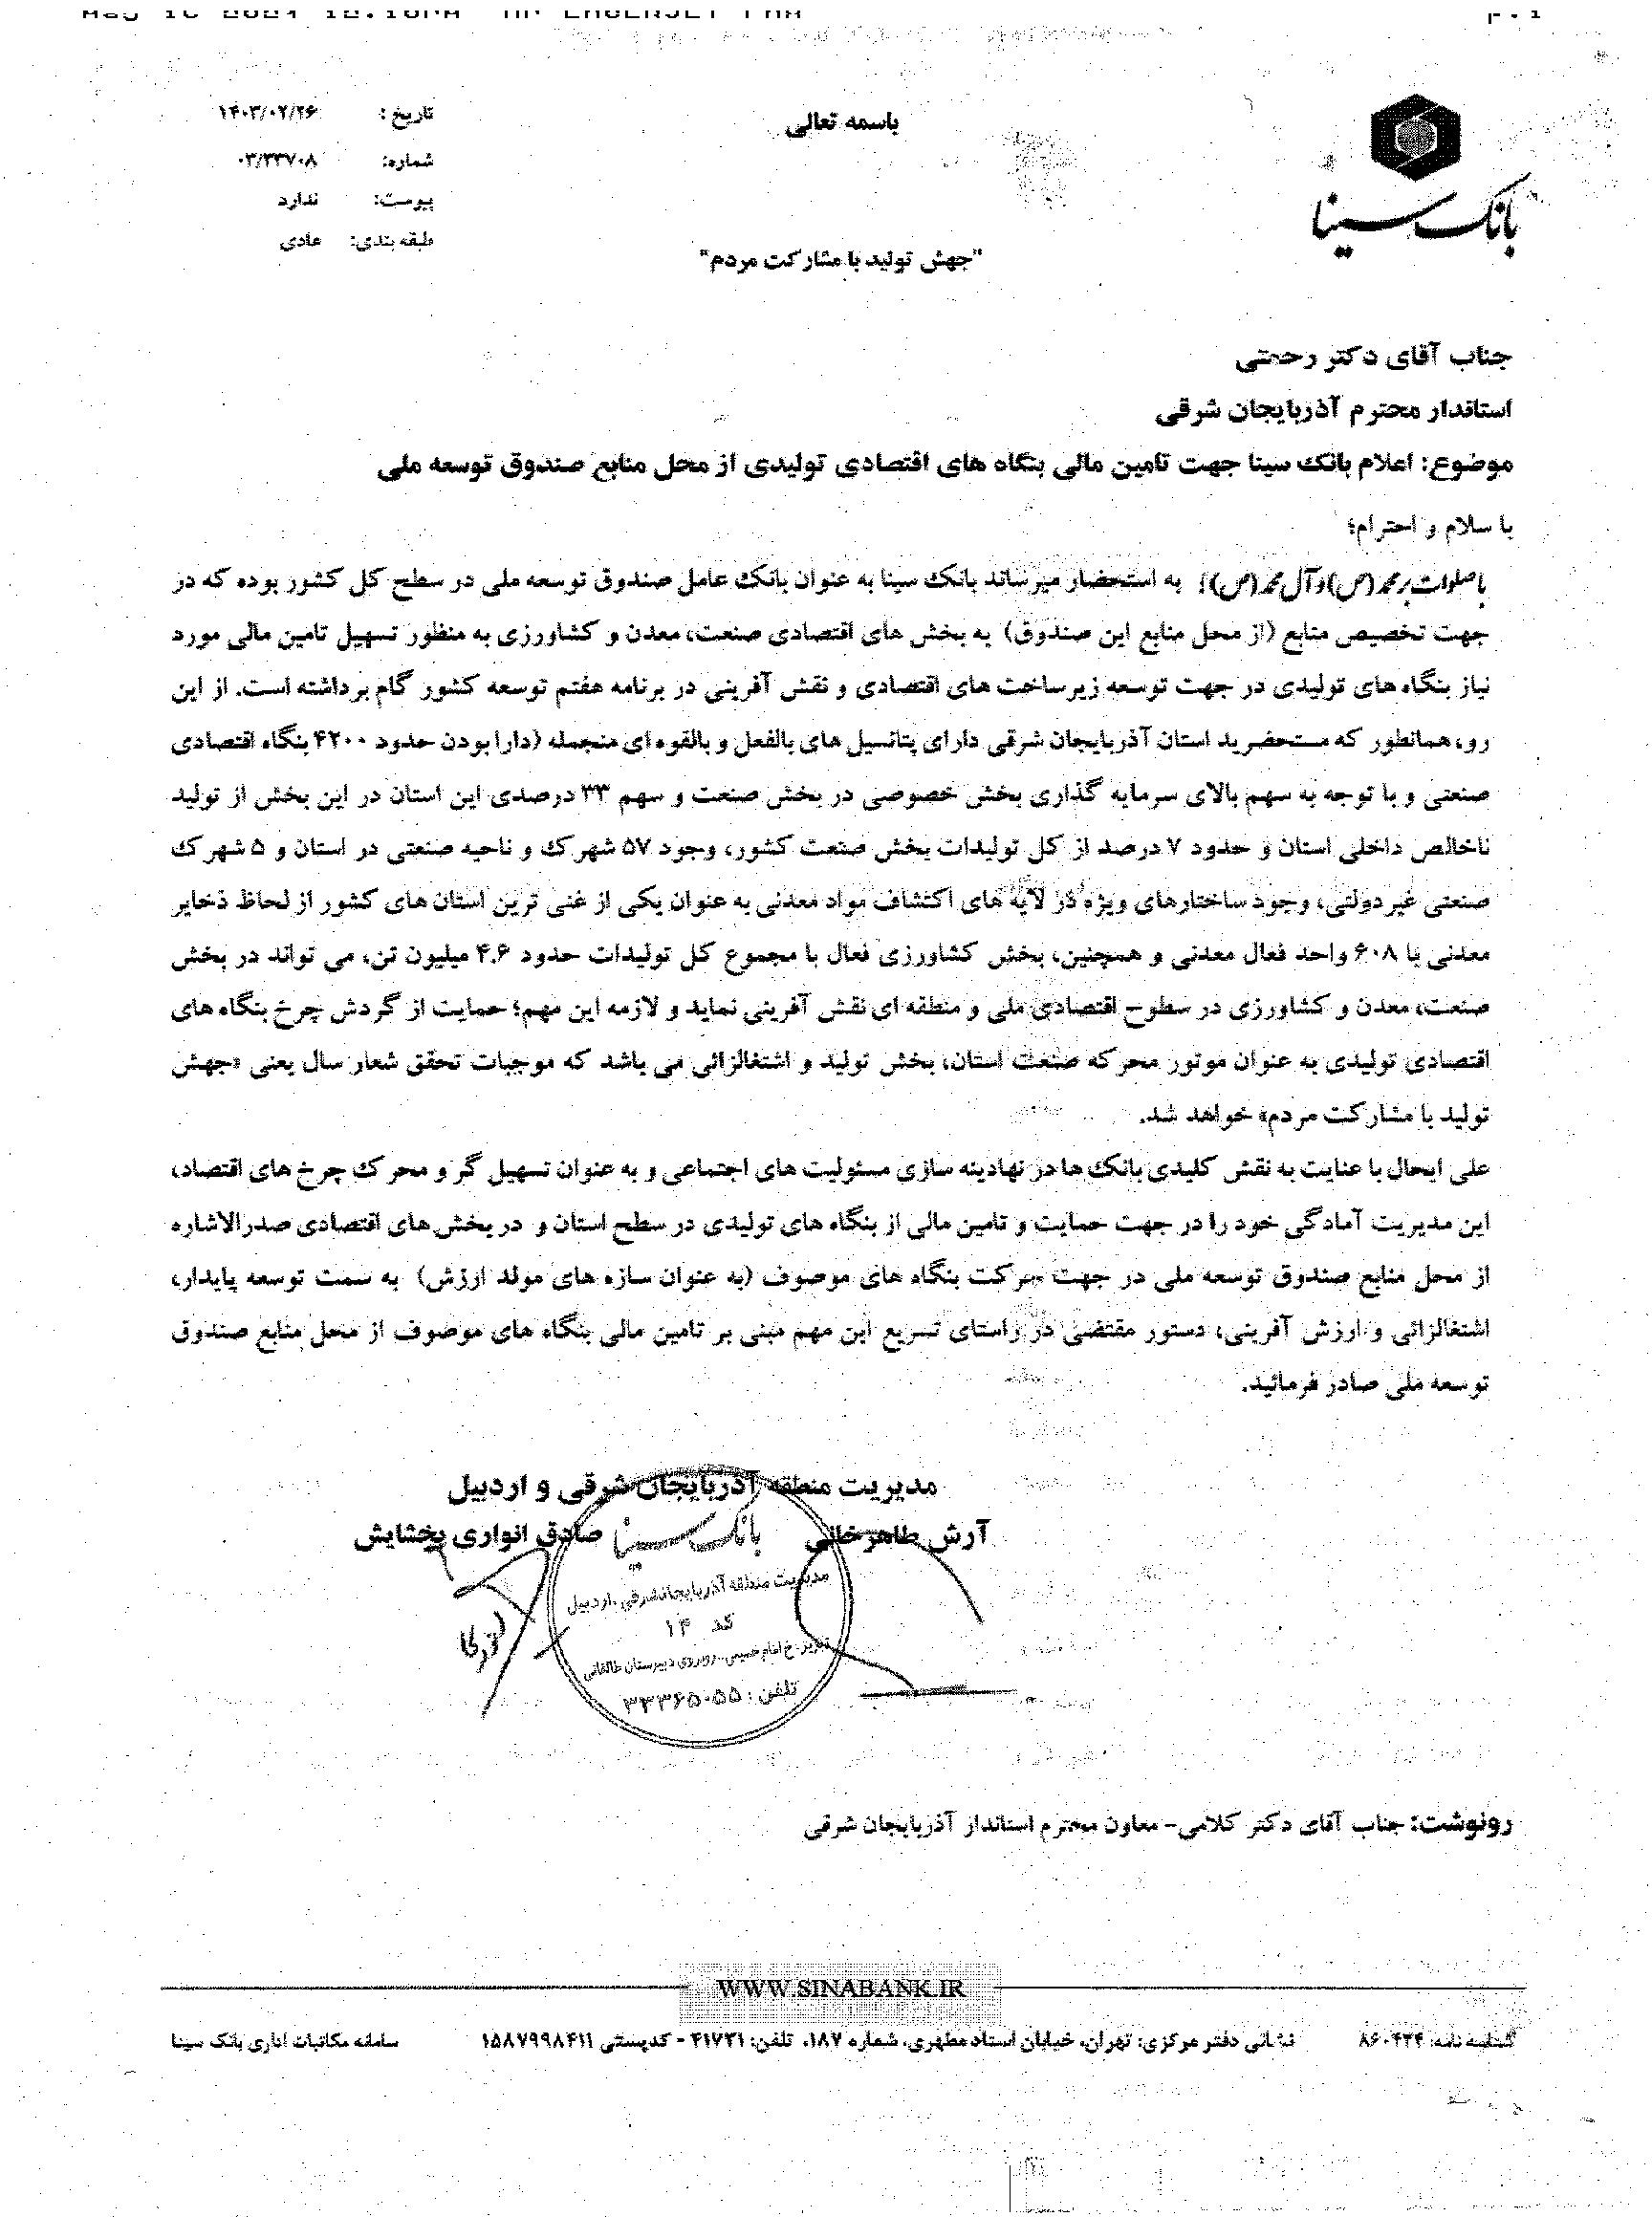 باسمه تعالی
بانک سینا
تاریخ: ۱۴۰۳/۰۲/۲۶
شماره: ۰۳/۳۳۷۰۸
پیوست: ندارد
طبقه بندی: عادی
"جهش تولید با مشارکت مردم"
جناب آقای دکتر رحمتی
استاندار محترم آذربایجان شرقی
موضوع: اعلام بانک سینا جهت تامین مالی بنگاه های اقتصادی تولیدی از محل منابع صندوق توسعه ملی
با سلام و احترام؛
با صلوات بر محمد (ص) و آل محمد (ص)؛ به استحضار میرساند بانک سینا به عنوان بانک عامل صندوق توسعه ملی در سطح کل کشور بوده که در
جهت تخصیص منابع (از محل منابع این صندوق) به بخش های اقتصادی صنعت، معدن و کشاورزی به منظور تسهیل تامین مالی مورد
نیاز بنگاه های تولیدی در جهت توسعه زیرساخت های اقتصادی و نقش آفرینی در برنامه هفتم توسعه کشور گام برداشته است. از این
رو، همانطور که مستحضرید استان آذربایجان شرقی دارای پتانسیل های بالفعل و بالقوه ای منجمله (دارا بودن حدود ۴۲۰۰ بنگاه اقتصادی
صنعتی و با توجه به سهم بالای سرمایه گذاری بخش خصوصی در بخش صنعت و سهم ۳۳ درصدی این استان در این بخش از تولید
ناخالص داخلی استان و حدود ۷ درصد از کل تولیدات بخش صنعت کشور، وجود ۵۷ شهرک و ناحیه صنعتی در استان و ۵ شهرک
صنعتی غیر دولتی، وجود ساختارهای ویژه در لایه های اکتشاف مواد معدنی به عنوان یکی از غنی ترین استان های کشور از لحاظ ذخایر
معدنی با ۶۰۸ واحد فعال معدنی و همچنین، بخش کشاورزی فعال با مجموع کل تولیدات حدود ۴.۶ میلیون تن، می تواند در بخش
صنعت، معدن و کشاورزی در سطوح اقتصادی ملی و منطقه ای نقش آفرینی نماید و لازمه این مهم؛ حمایت از گردش چرخ بنگاه های
اقتصادی تولیدی به عنوان موتور محرکه صنعت استان، بخش تولید و اشتغالزائی می باشد که موجبات تحقق شعار سال یعنی «جهش
تولید با مشارکت مردم» خواهد شد.
علی ایحال با عنایت به نقش کلیدی بانک ها در نهادینه سازی مسئولیت های اجتماعی و به عنوان تسهیل گر و محرک چرخ های اقتصاد،
این مدیریت آمادگی خود را در جهت حمایت و تامین مالی از بنگاه های تولیدی در سطح استان و در بخش های اقتصادی صدرالاشاره
از محل منابع صندوق توسعه ملی در جهت حرکت بنگاه های موصوف (به عنوان سازه های مولد ارزش) به سمت توسعه پایدار،
اشتغالزائی و ارزش آفرینی، دستور مقتضی در راستای تسریع این مهم مبنی بر تامین مالی بنگاه های موصوف از محل منابع صندوق
توسعه ملی صادر فرمائید.
مدیریت منطقه آذربایجان شرقی و اردبیل
آرش طاهرخانی
صادق انواری بخشایش
بانک سینا
مدیریت منطقه آذربایجانشرقی . اردبیل
کد ۱۴
تبریز. خ امام خمینی. روبروی دبیرستان طالقانی
تلفن: ۳۳۳۶۵۰۵۵
رونوشت: جناب آقای دکتر کلامی- معاون محترم استاندار آذربایجان شرقی
WWW.SINABANK.IR
گشاسه نامه: ۸۶۰۴۳۴
نشانی دفتر مرکزی: تهران، خیابان استاد مطهری، شماره ۱۸۷، تلفن: ۴۱۷۳۱ - کدپستی ۱۵۸۷۹۹۸۴۱۱
سامانه مکاتبات اداری بانک سینا